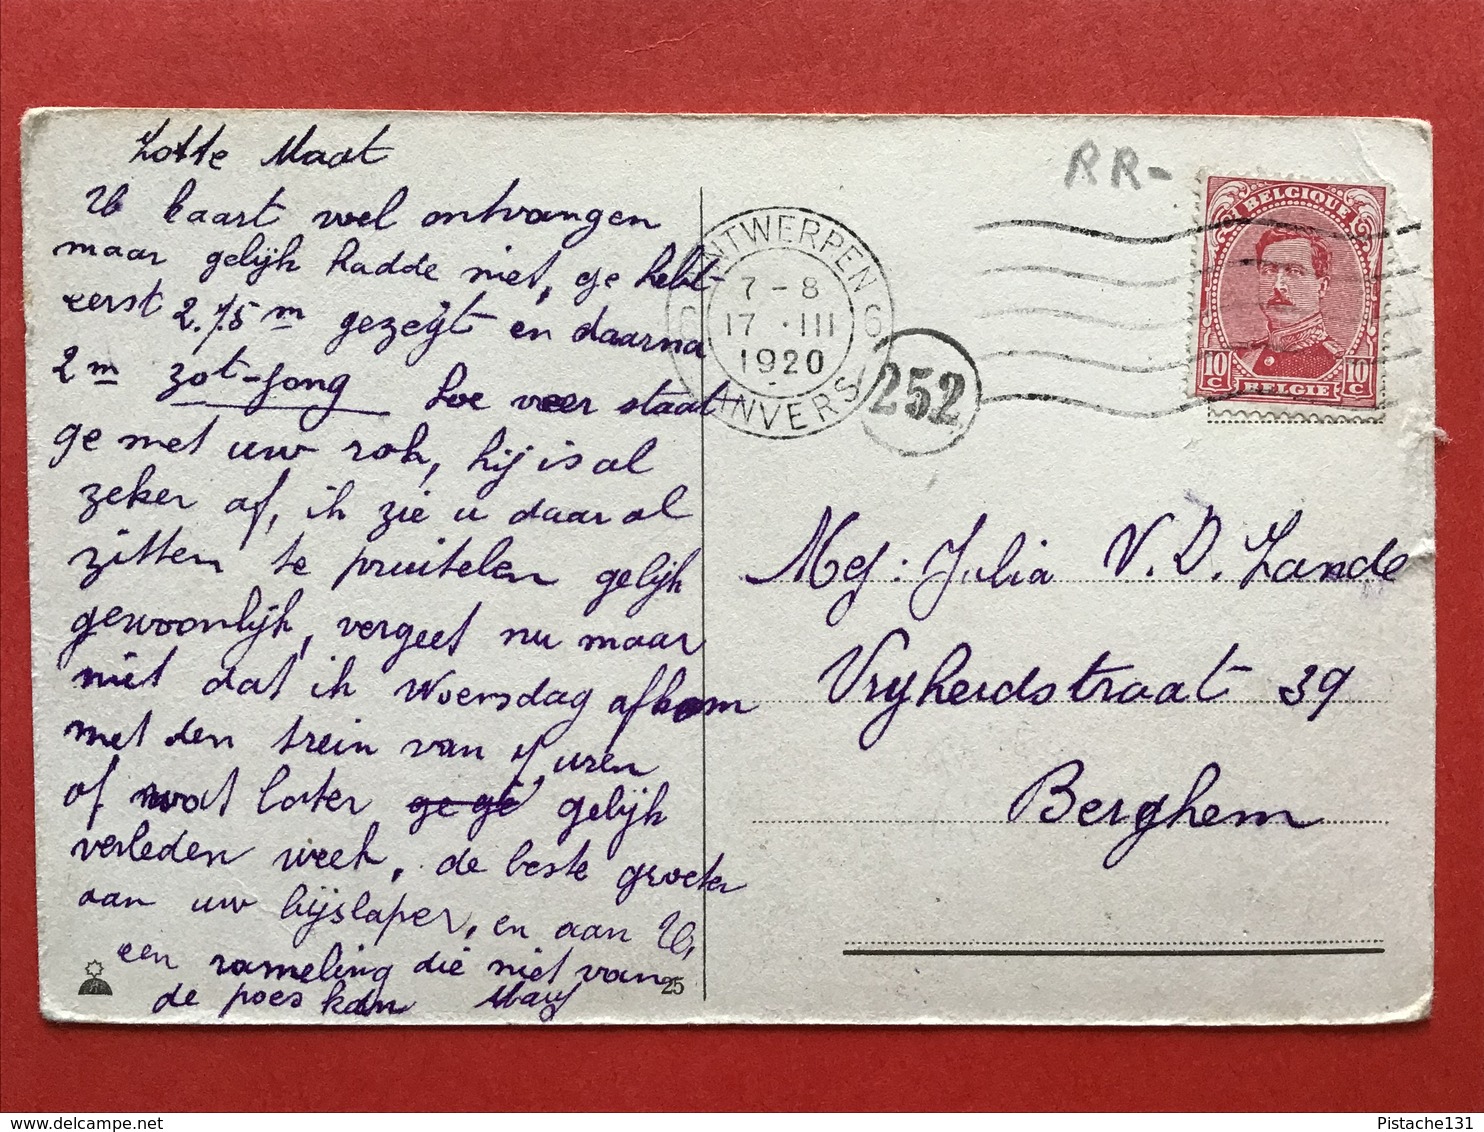 Zotte Maat
U kaart wel ontvangen
maar gelijk hadde niet, ge hebt
eerst 2.75 m gezegt en daarna
2 m zot-jong hoe veer staat
ge met uw rok, hij is al
zeker af, ik zie u daar al
zitten te pruitelen gelijk
gewoonlijk, vergeet nu maar
niet dat ik Woensdag afkom
met den trein van 7 uren
of wat later ge ge gelijk
verleden week, de beste groeten
aan uw bijslaper, en aan U,
een rameling die niet van
de poes kan May
25
RR-
ANTWERPEN 6
7 - 8
17 · III
1920
6 ANVERS
252
BELGIQUE
10 C 10 C
BELGIE
Mej: Julia V. D. Zande
Vryheidstraat 39
Berghem
Pistache131